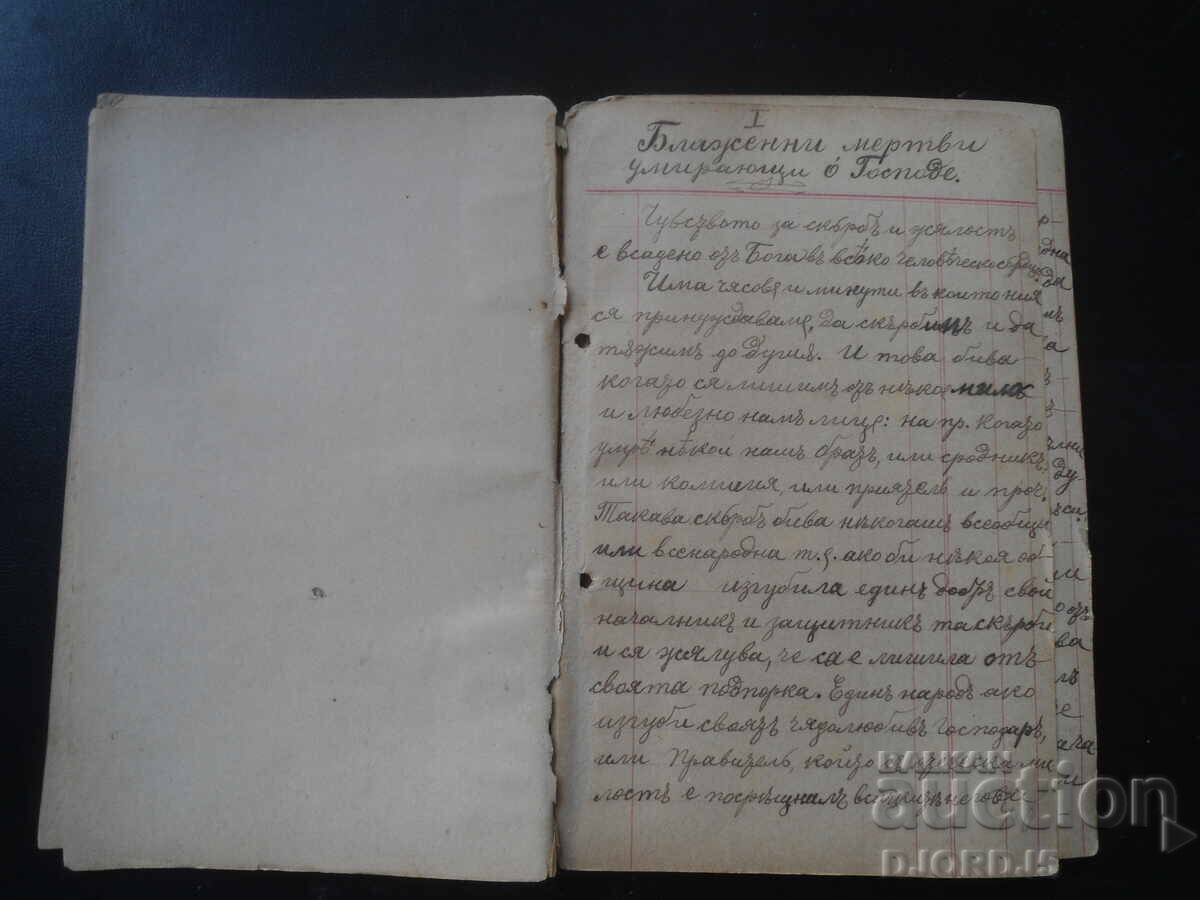 I
Блаженни мертви
умирающи ѡ Господе.
Чувството за скърбь и жялость
е всадено отъ Бога въ всѣко человѣческо
Има часове и минути въ които ния
ся принуждаваме, да скърбимъ и да
тѫжимъ до
И това бива
когато ся лишимъ отъ нѣкое мило
и любезно намъ лице: на пр. когато
умрѣ нѣкой нашъ братъ, или сродникъ,
или комшия, или приятель и проч.
Такава скърбь бива нѣкогашъ всеобща
или всенародна т.е. ако би нѣкоя об-
щина изгубила единъ добъръ свой
началникъ и защитникъ та скърби
и ся жялува, че са е лишила отъ
своята подпорка. Единъ народъ ако
изгуби своятъ чядолюбивъ господаръ,
или Правитель, който
ми
лость е посрѣщналъ
BALKAN
auction
DJORD.15